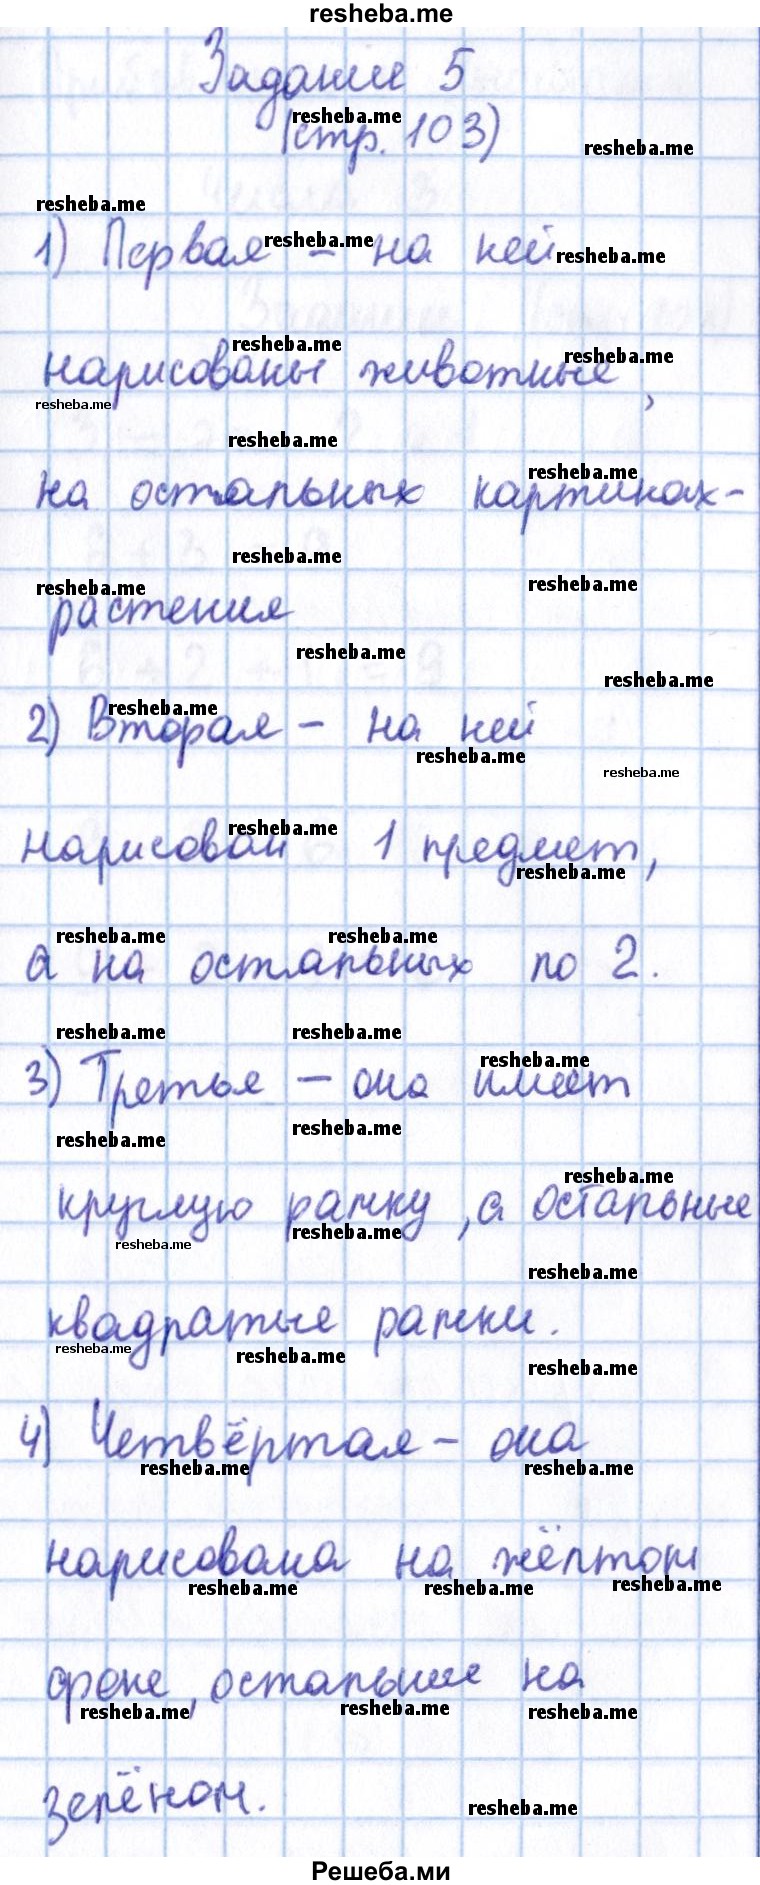 resheba.me
Задание 5
resheba.me
(стр. 103)
resheba.me
resheba.me
resheba.me
1) Первая – на ней
resheba.me
resheba.me
resheba.me
нарисованы животные,
resheba.me
resheba.me
resheba.me
на остальных картинах-
resheba.me
resheba.me
resheba.me
растения
resheba.me
resheba.me
resheba.me
2) Вторая – на ней
resheba.me
resheba.me
resheba.me
нарисован 1 предмет,
resheba.me
resheba.me
resheba.me
а на остальных по 2.
resheba.me
resheba.me
resheba.me
3) Третья – она имеет
resheba.me
resheba.me
resheba.me
круглую рамку, а остальные
resheba.me
resheba.me
resheba.me
квадратые рамки.
resheba.me
resheba.me
resheba.me
4) Четвёртая – она
resheba.me
resheba.me
нарисована на жёлтом
resheba.me
resheba.me
resheba.me
фоне, остальные на
resheba.me
resheba.me
resheba.me
зелёном.
resheba.me
Решеба.ми